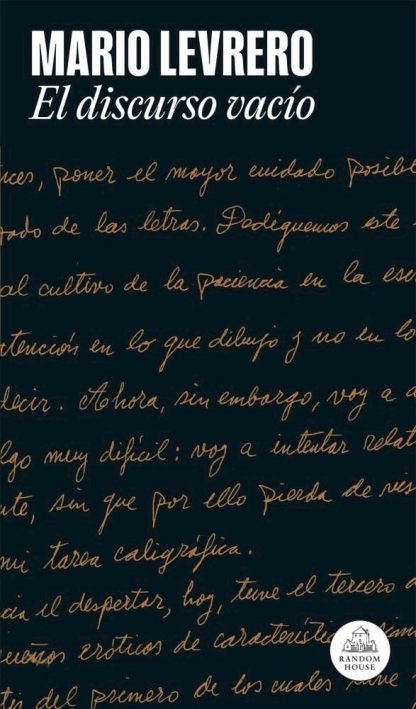 MARIO LEVRERO
El discurso vacío
nces, poner el mayor cuidado posibl
zado de las letras. Dediquemos este
al cultivo de la paciencia en la esc
atención en lo que dibujo y no en lo
decir. Ahora, sin embargo, voy a
lgo muy difícil: voy a intentar relat
nte, sin que por ello pierda de vis
mi tarea caligráfica.
cia el despertar, hoy, tuve el tercero
sueños eróticos de característic
tes del primero de los cuales tuve
RANDOM
HOUSE